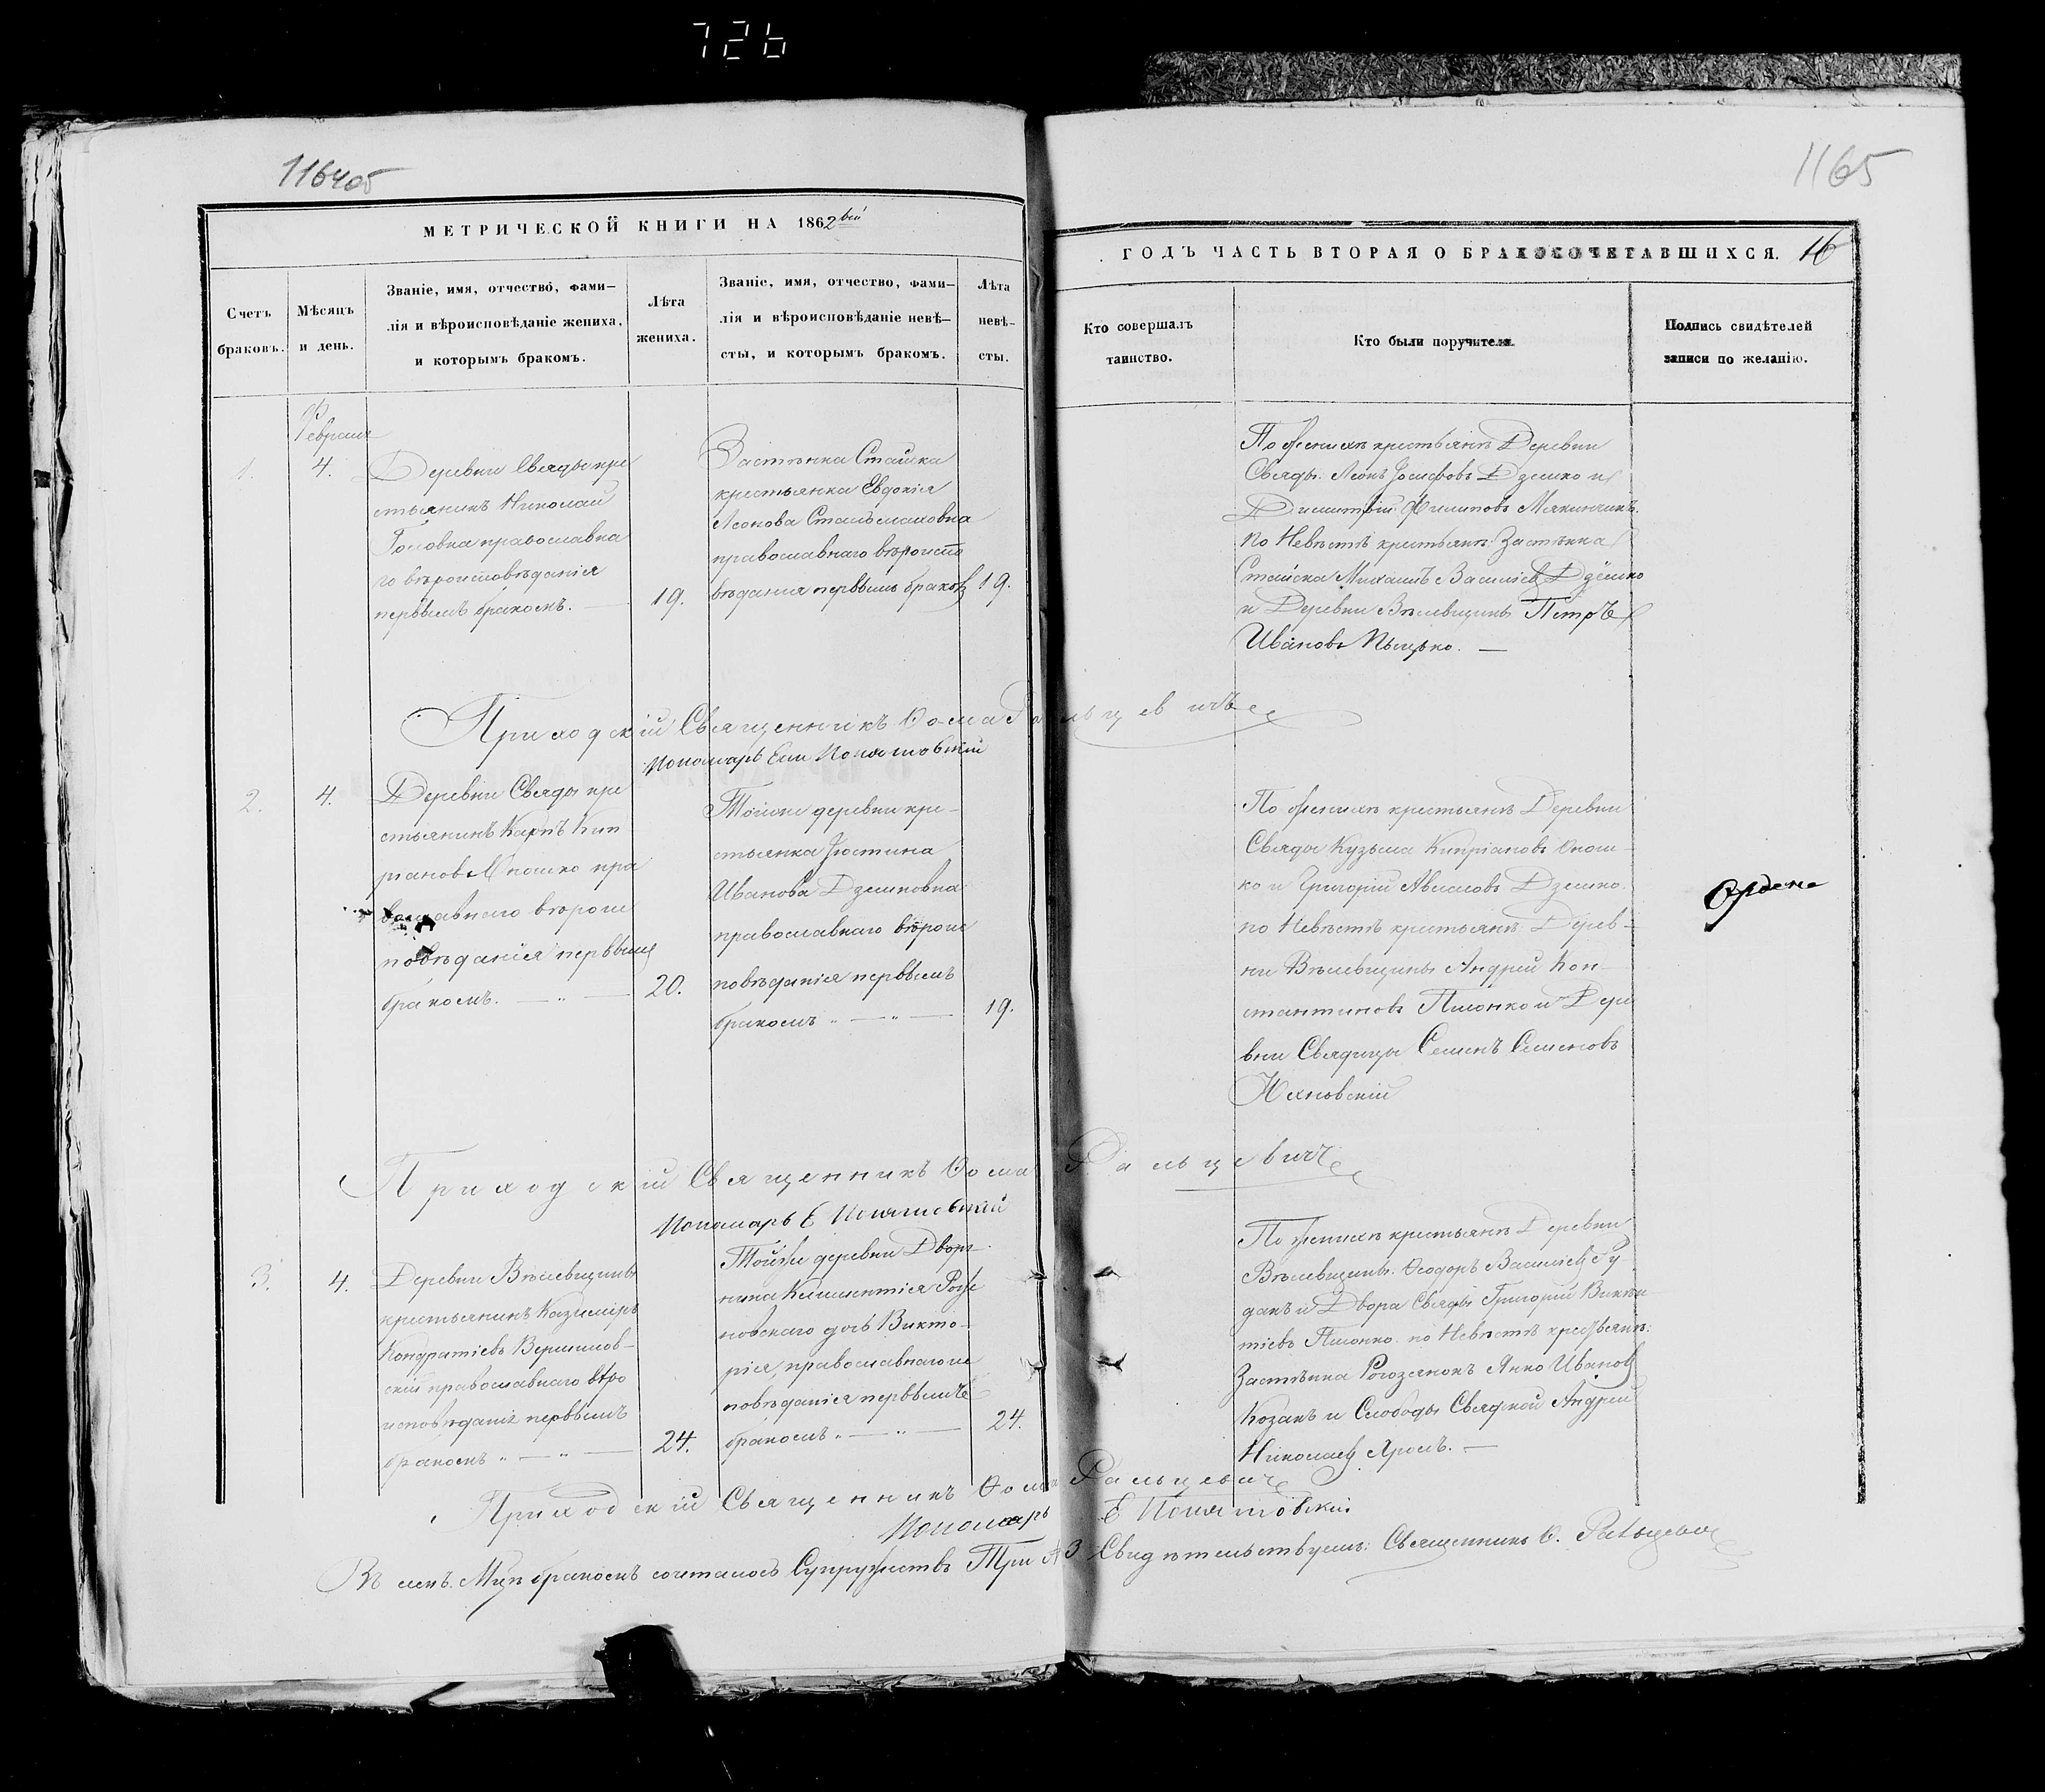 726
1164об
1165
МЕТРИЧЕСКОЙ КНИГИ НА 1862вой
ГОДЪ ЧАСТЬ ВТОРАЯ О БРАКОСОЧЕТАВШИХСЯ. 16
Счетъ браковъ.
Мѣсяцъ и день.
Званіе, имя, отчество, фами-
лія и вѣроисповѣданіе жениха,
и которымъ бракомъ.
Лѣта жениха.
Званіе, имя, отчество, фами-
лія и вѣроисповѣданіе невѣ-
сты, и которымъ бракомъ.
Лѣта невѣ-
сты.
Кто совершалъ
таинство.
Кто были поручители.
Подпись свидѣтелей
записи по желанію.
Февраля
1.
4.
Деревни Свяды кре
стьянинъ Николай
Головка православна
го вѣроисповѣданія
первымъ бракомъ.
19.
Застѣнка Стайска
крестьянка Евдокія
Леонова
православнаго вѣроиспо
вѣданія первымъ браком
19.
По Женихѣ крестьянѣ Деревни
Свяды. Леонъ Іосифовъ Дземко и
Димитрій Филиповъ
по Невѣстѣ крестьяне: Застѣнка
Стайска Михаилъ Василіев Дземко
и Деревни Вѣлевщины Петръ
Ивановъ
Приходскій Священникъ Ѳома Ральцевичъ
Пономарь Понятовскій
2.
4.
Деревни Свяды кре
стьянинъ Карпъ Кип
ріановъ Опошко пра
вославнаго вѣроис
повѣданія первымъ
бракомъ.
20.
Тойже деревни кре-
стьянка Іюстина
Иванова Дземковна
православнаго вѣроис
повѣданія первымъ
бракомъ
19.
По Женихѣ крестьянѣ Деревни
Свяды Кузьма Кипріановъ Опош-
ко и Григорій Дземко.
по Невѣстѣ крестьянѣ Дерев-
ни Вѣлевщины Андрей Кон-
стантиновъ Плюнко и Дере
вни Свядицы Семенъ Семеновъ
Яхновскій
Приходскій Священникъ Ѳома Ральцевичъ
Пономарь Е Понятовскій
3.
4.
Деревни Вѣлевщины
крестьянинъ Казиміръ
Кондратіевъ
скій православнаго вѣро
исповѣданія первымъ
бракомъ
24.
Тойже деревни Дворя-
нина Климентія Рож
новскаго дочь Викто-
рія, православнаго ис
повѣданія первымъ
бракомъ
24.
По Женихѣ крестьянѣ Деревни
Вѣлевщины. Ѳеодоръ Василіев Ру-
дакъ и Двора Свяды Григорій Викен
тіевъ Плюнко. по Невѣстѣ крестьяне:
Застѣнка Рогозянокъ Янко Иванов
Козакъ и Слободы Свядской Андрей
Николаев
Приходскій Священникъ Ѳома Ральцевичъ
Пономарь Е Понятовскій
бракомъ сочталось Супружествъ Три 3 Свидѣтельствуемъ: Священникъ Ѳ. Ральцевичъ